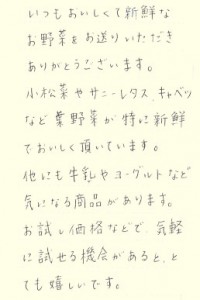 いつもおいしくて新鮮な
お野菜をお送りいただき
ありがとうございます。
小松菜やサニーレタス、キャベツ
など葉野菜が特に新鮮
でおいしく頂いています。
他にも牛乳やヨーグルトなど
気になる商品があります。
お試し価格などで、気軽
に試せる機会があると、と
ても嬉しいです。